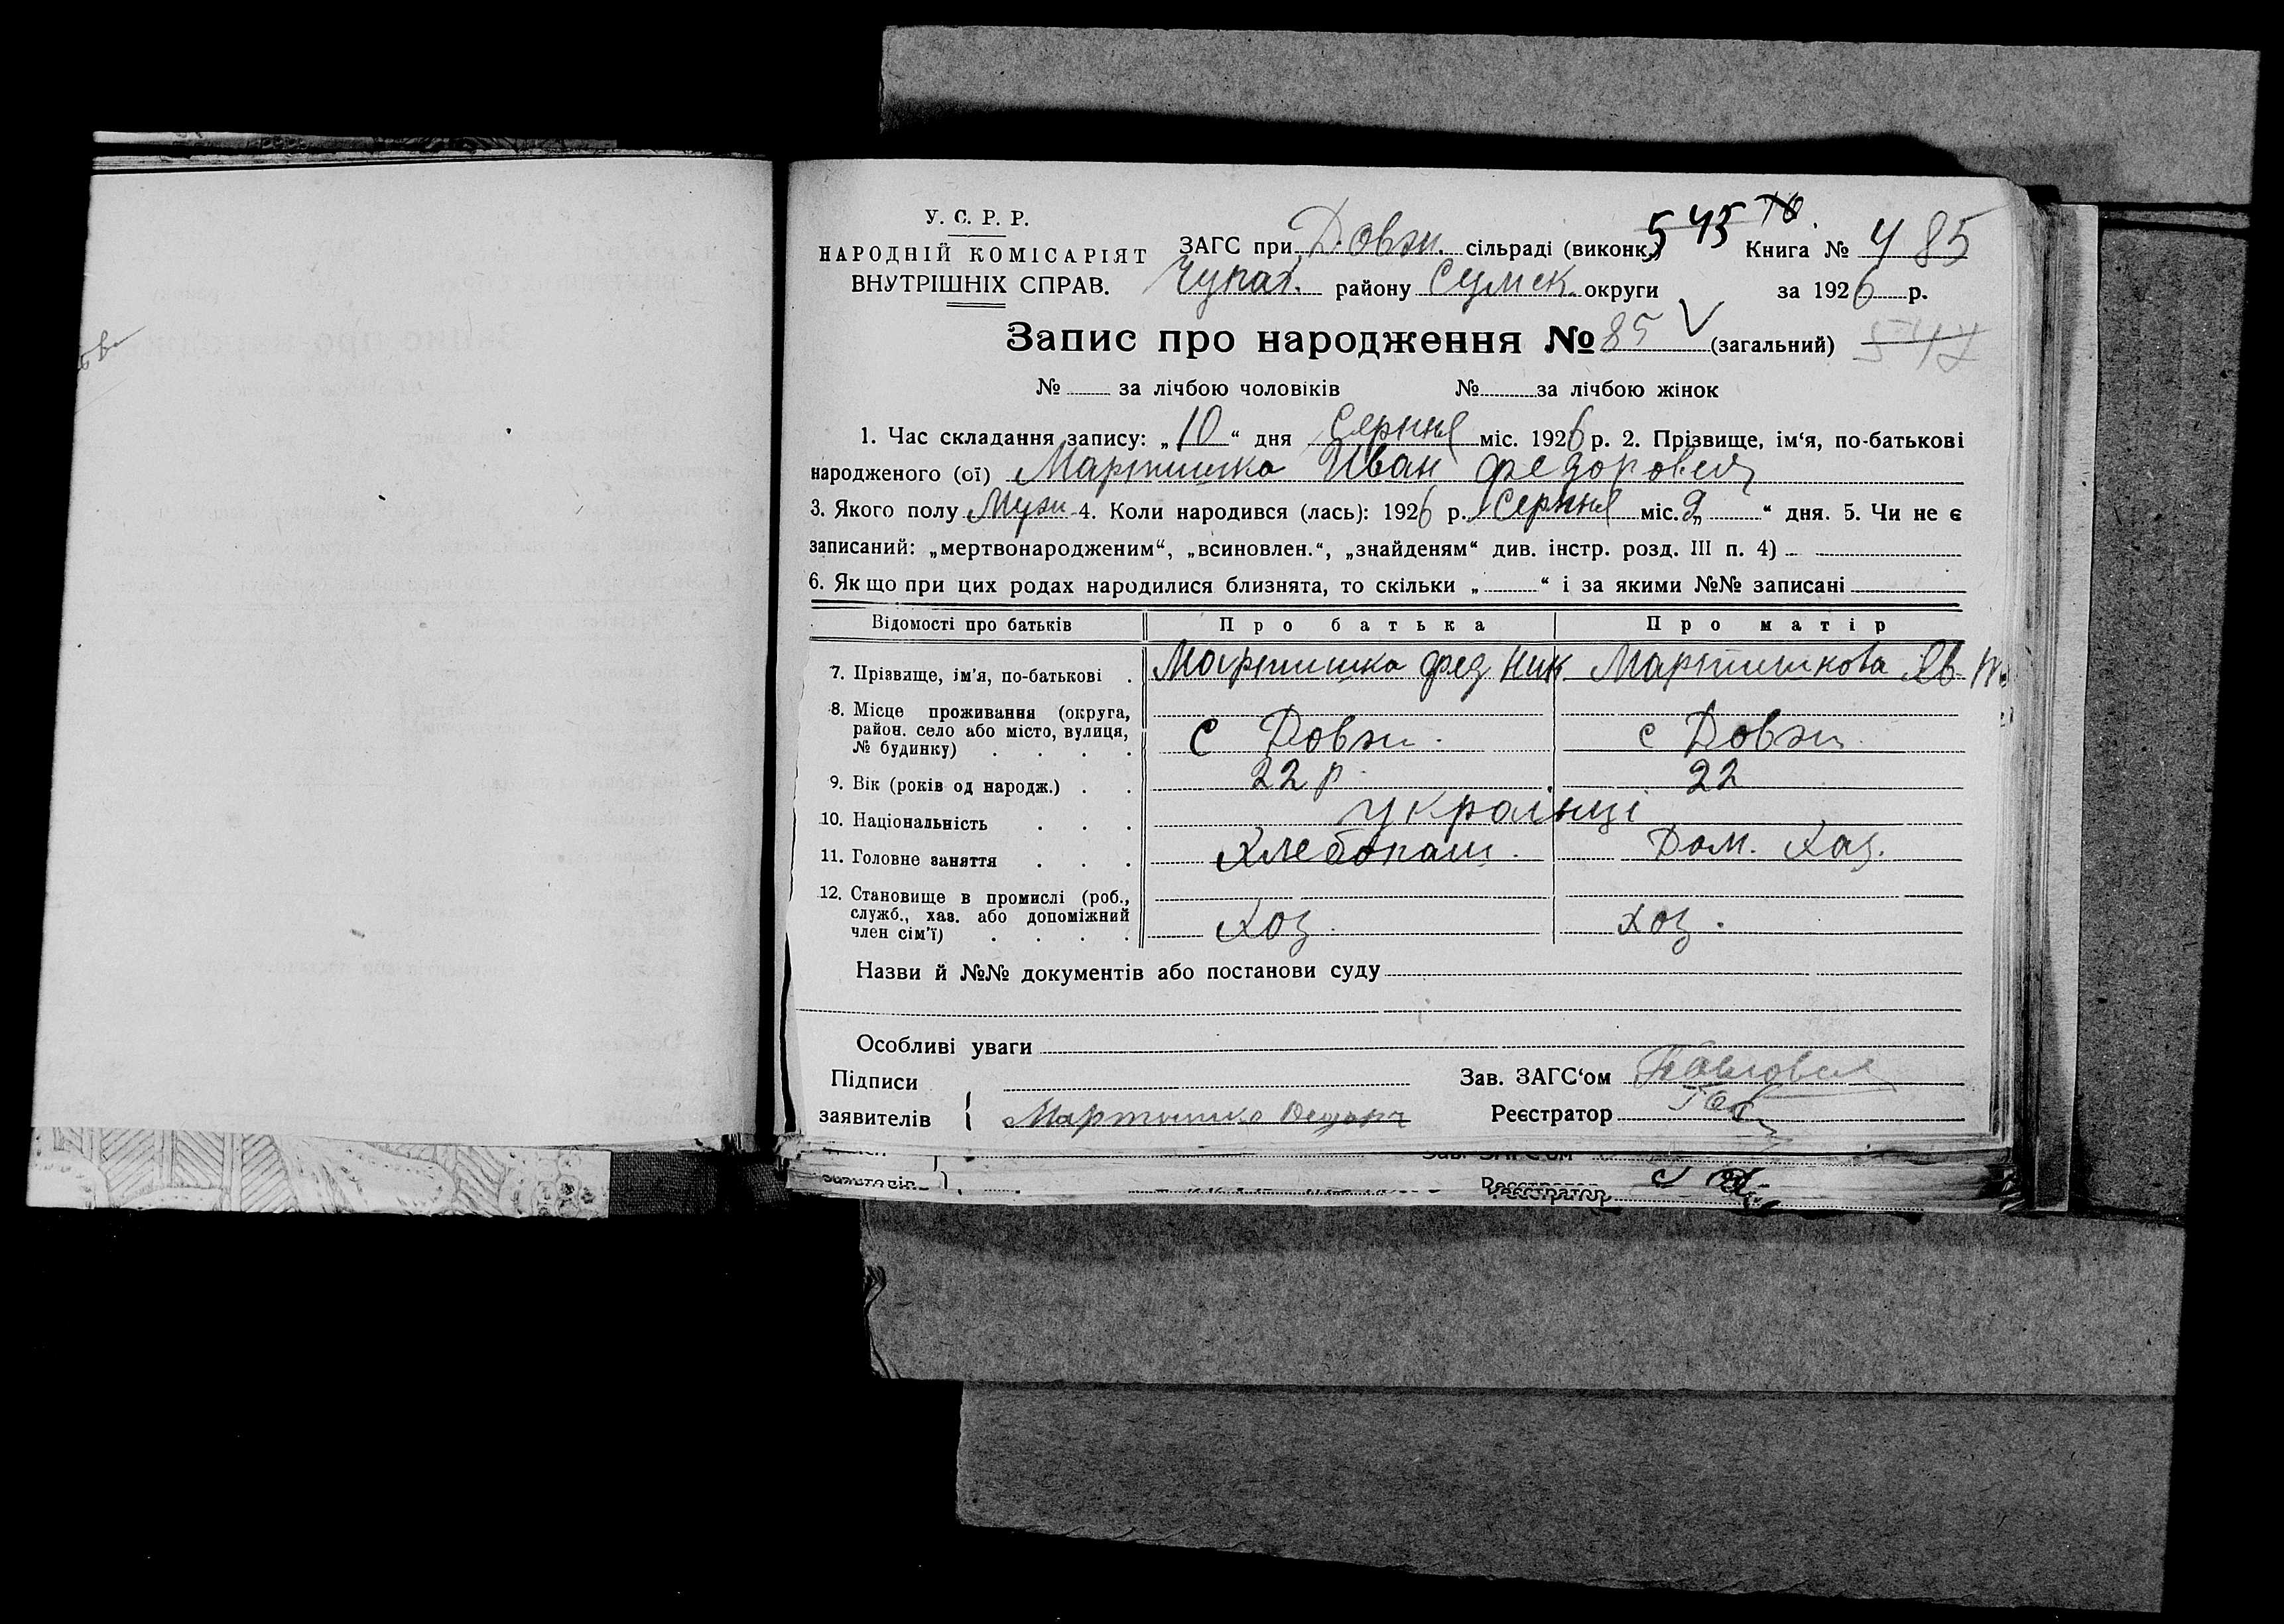 У. С. Р. Р.
НАРОДНІЙ КОМІСАРІЯТ
ВНУТРІШНІХ СПРАВ.
ЗАГС при Довж. сільраді (виконк.) 545 Книга № 4 85
Чупах. району Сумск. округи за 1926 р.
Запис про народження № 85 (загальний) 547
№ за лічбою чоловіків № за лічбою жінок
1. Час складання запису: „10“ дня Серпня міс. 1926 р. 2. Прізвище, ім‘я, по-батькові
народженого (ої) Мартишка Иван Федорович
3. Якого полу Муж 4. Коли народився (лась): 1926 р. Серпня міс. „9“ дня. 5. Чи не є
записаний: „мертвонародженим“, „всиновлен.“, „знайденям“ див. інстр. розд. III п. 4)
6. Якщо при цих родах народилися близнята, то скільки „ “ і за якими №№ записані
Відомості про батьків Про батька Про матір
7. Прізвище, ім'я, по-батькові Мартишка Фед Ник Мартишкова Яв
8. Місце проживання (округа,
район. село або місто, вулиця,
№ будинку) с Довж. с Довж
9. Вік (років од народж.) 22 р. 22
10. Національність українці
11. Головне заняття Хлебопаш. Дом. Хаз.
12. Становище в промислі (роб.,
служб., хаз. або допоміжний
член сім'ї) Хоз. хоз.
Назви й №№ документів або постанови суду
Особливі уваги
Підписи Зав. ЗАГС‘ом
заявителів Мартишка Реєстратор
Зав. ЗАГС'ом
заявителів Реєстратор
Реєстратор